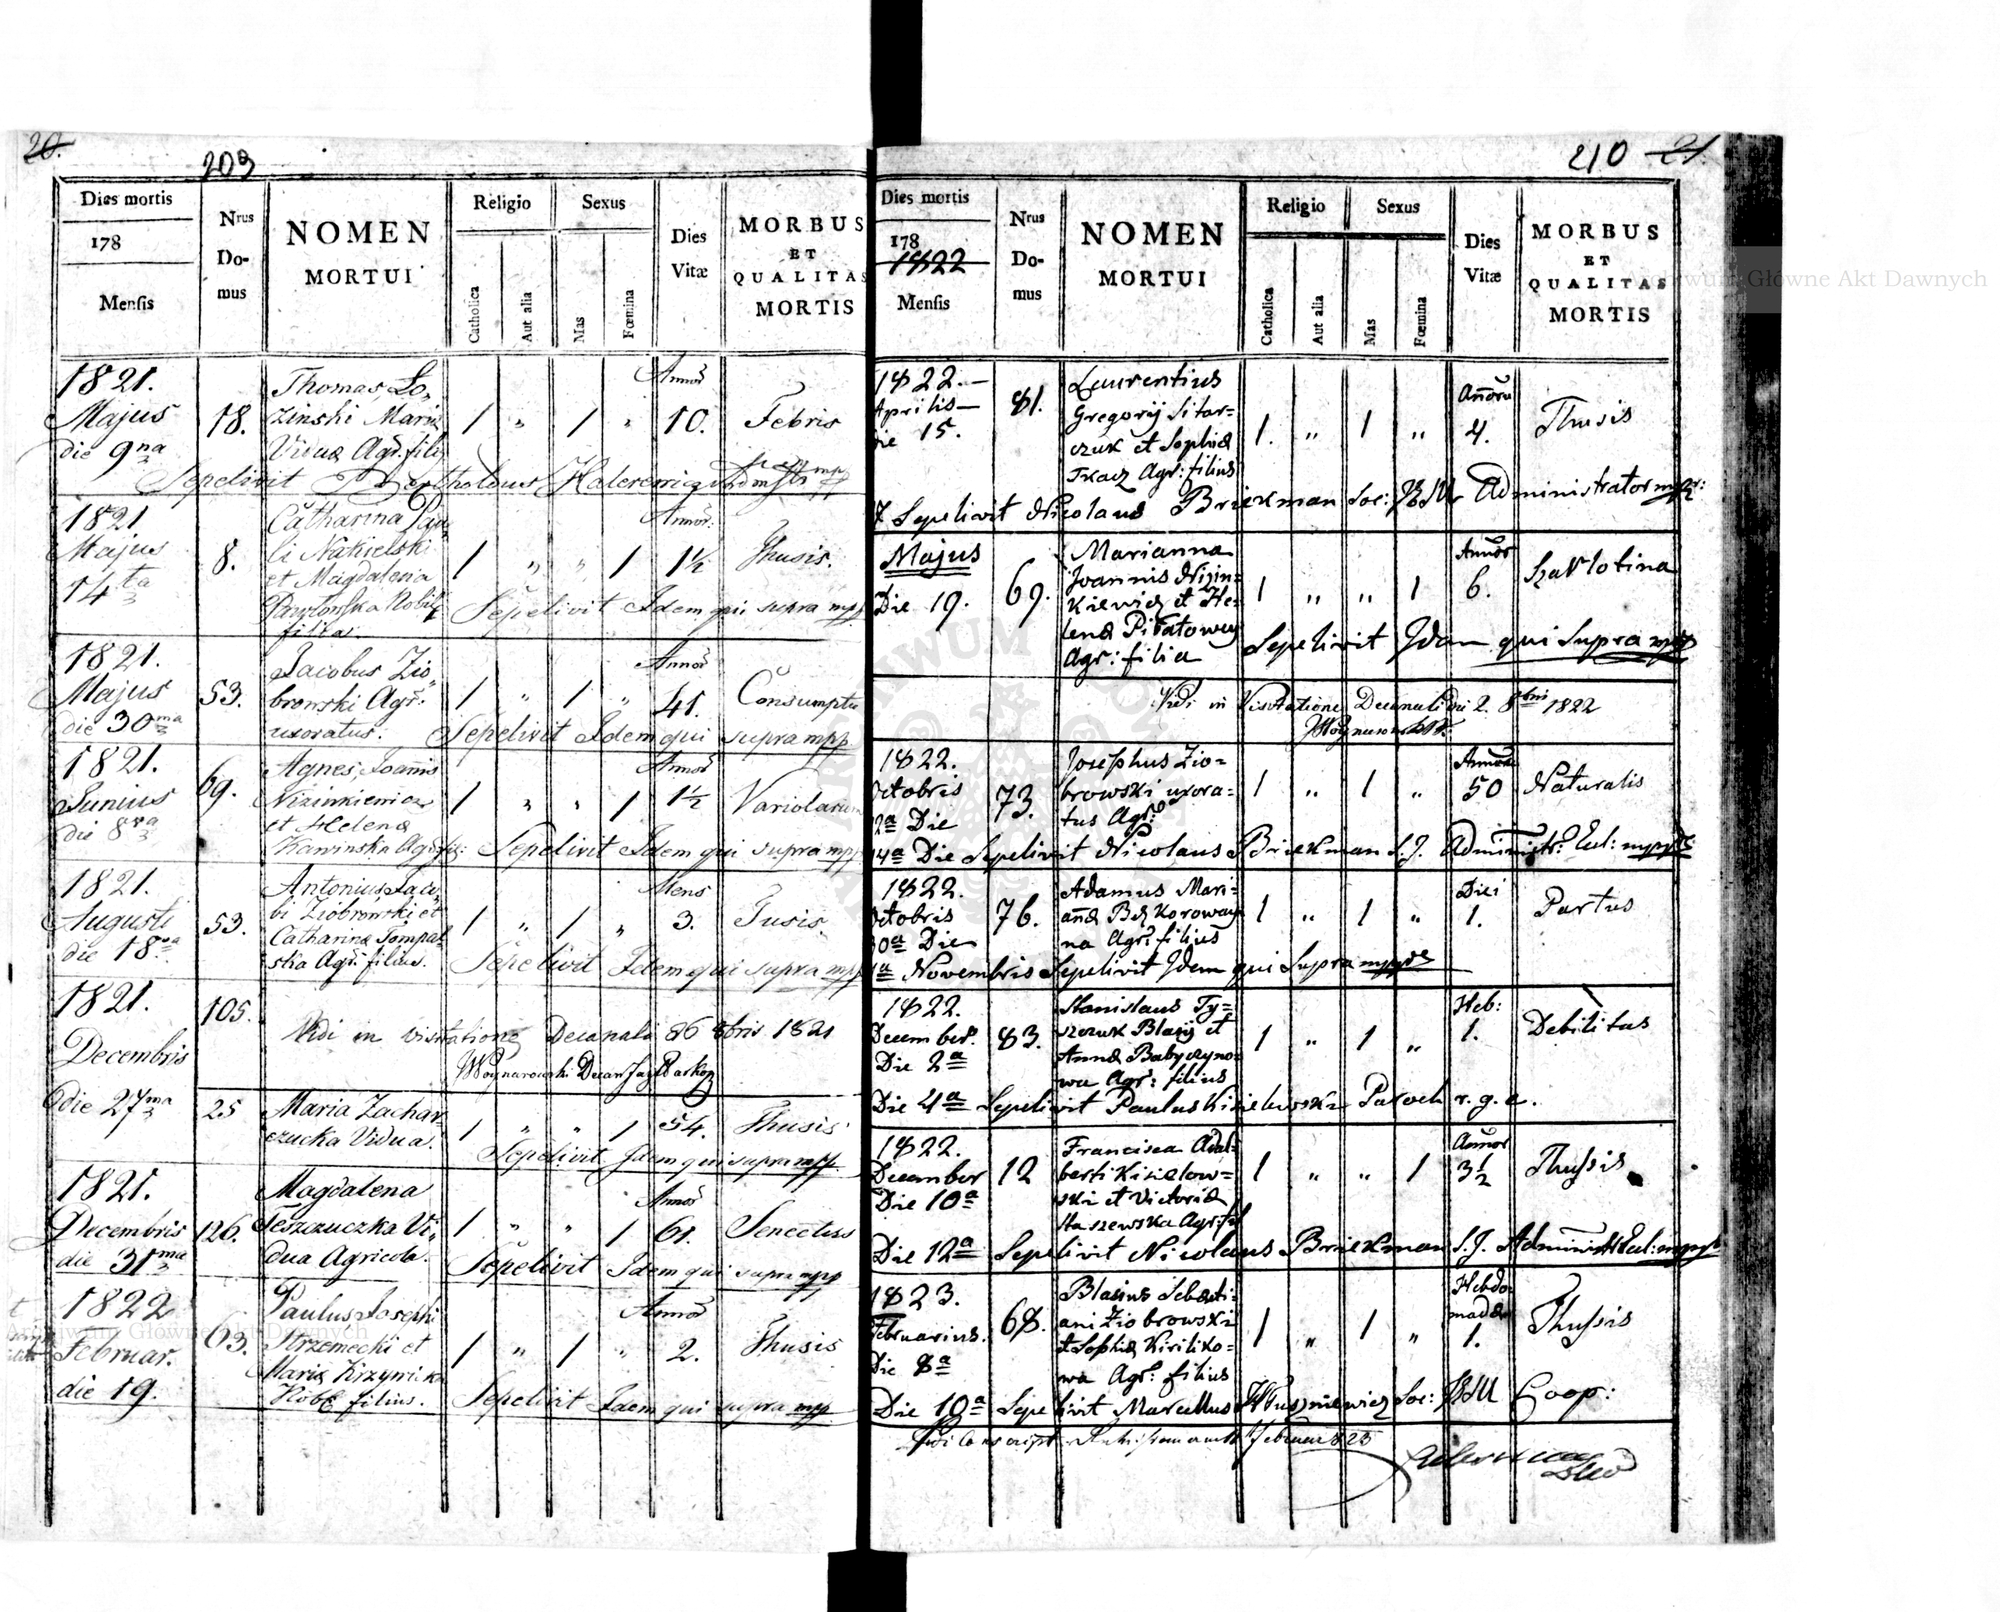 20.
209
Dies mortis
178
Mensis
Nrus
Do-
mus
NOMEN
MORTUI
Religio
Catholica
Aut alia
Sexus
Mas
Fœmina
Dies
Vitæ
MORBUS
ET
QUALITAS
MORTIS
1821.
Majus
die 9na
18.
Thomas Lo,
zinski Maria
Vidua Agr. fili
1 " 1 "
Annor
10.
Febris
Sepelivit Bertholdus
1821
Majus
14ta
8.
Catharina Pau
li Nakielski
et Magdalena
Nobil
filia.
1 " " 1
Annor.
1½
Thusis.
Sepelivit Idem qui supra mpp
1821.
Majus
die 30ma
53.
Jacobus Zio,
browski Agr.
uxoratus.
1 " 1 "
Annor
41.
Consumptio
Sepelivit Idem qui supra mpp
1821.
Junius
die 8va
69.
Agnes Joannis
Nizinkiewicz
et Helena
Kawinska Agr. fil:
1 " " 1
Annor
1½
Variolarum
Sepelivit Idem qui supra mpp
1821.
Augusti
die 18va
53.
Antonius Jaco,
bi Ziobrowski et
Catharina Tompal
ska Agr. filius.
1 " 1 "
Mens
3.
Tusis.
Sepelivit Idem qui supra mpp
1821.
Decembris
die 27ma
105.
Vidi in visitatione Decanali 26 8bris 1821
Woynarowski Decan
25
Maria Zachar-
czucka Vidua.
1 " " 1
54.
Thusis
Sepelivit Idem qui supra mpp
1821.
Decembris
die 31ma
126.
Magdalena
Leszczuczka Vi,
dua Agricola.
1 " " 1
Annor
61.
Senectus
Sepelivit Idem qui supra mpp
1822
Februar.
die 19.
63.
Paulus Josephi
Strzemecki et
Maria Krzywicka
Nob. filius.
1 " 1 "
Annor
2.
Thusis
Sepelivit Idem qui supra mpp
210 21.
Dies mortis
178
1822
Mensis
Nrus
Do-
mus
NOMEN
MORTUI
Religio
Catholica
Aut alia
Sexus
Mas
Fœmina
Dies
Vitæ
MORBUS
ET
QUALITAS
MORTIS
1822.—
Aprilis—
Die 15.
81.
Laurentius
Gregorij Sitar=
czuk et Sophia
Tkacz Agr: filius
1. " 1 "
Annoru
4.
Thusis
Sepelivit Nicolaus Briekman Soc: Administrator
Majus
Die 19.
69.
Marianna
Joannis Nizin=
kiewicz et He=
lena
Agr: filia
1 " " 1
Annor
6.
Szarlotina
Sepelivit Idem qui supra mpp
Vidi in Visitatione Decanali die 2. 8bris 1822
1822.
Octobris
12a Die
73.
Josephus Zio=
browski uxora=
tus Agr:
1 " 1 "
Annoru
50
Naturalis
14a Die Sepelivit Nicolaus Briekman S.J. Administr. Eccl:
1822.
Octobris
30a Die
76.
Adamus Mari=
anna Koroway
na Agr: filius
1 " 1 "
Diei
1.
Partus
1a Novembris Sepelivit Idem qui supra
1822.
December.
Die 2a
83.
Stanislaus Ty=
szczuk Blasij et
Anna Babyczyno=
wa Agr: filius
1 " 1 "
Heb:
1.
Debilitas
Die 4a Sepelivit Paulus Paroch r. g. c.
1822.
December
Die 10a
12
Francisca Adal=
berti Kisielow=
ski et Victoria
Staszewska Agr: fil
1 " " 1
Annor
3½
Thussis
Die 12a Sepelivit Nicolaus Briekman S.J. Administr. Eccl:
1823.
Februarius.
Die 8a
68.
Blasius Sebasti=
ani Ziobrowski
et Sophia Kiriliko=
wa Agr: filius
1 " 1 "
Hebdo
madae
1.
Thussis
Die 10a Sepelivit Marcellus Soc: Coop:
Archiwum Główne Akt Dawnych
Archiwum Główne Akt Dawnych